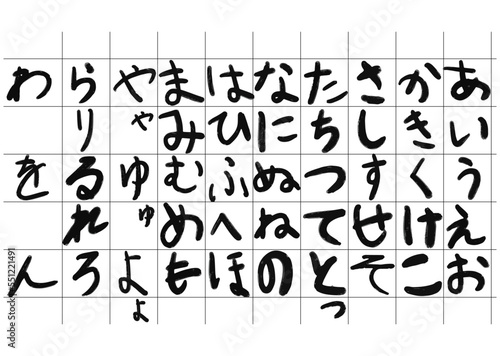 あいうえお
かきくけこ
さしすせそ
たちつてとっ
なにぬねの
はひふへほ
まみむめも
やゃゆゅよょ
らりるれろ
わをん
Adobe Stock
551221491